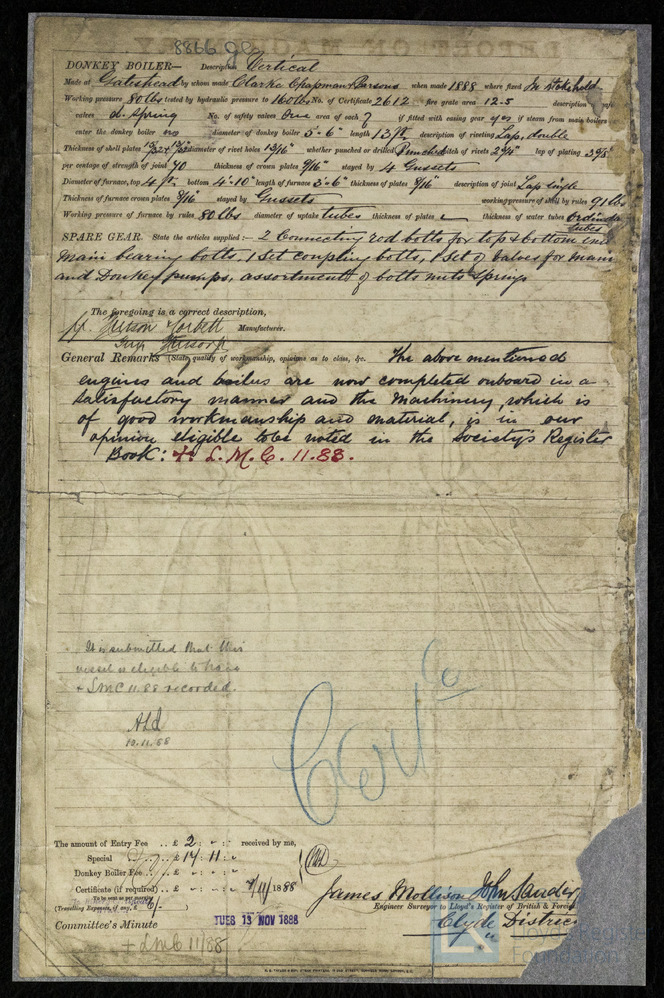 8866 gls
DONKEY BOILER— Description Vertical
Made at Gateshead by whom made Clarke Chapman Parsons when made 1888 where fixed In Stokehold
Working pressure 80 lbs tested by hydraulic pressure to 160 lbs No. of Certificate 2612 fire grate area 12.5 description of safe
valves d. Spring No. of safety valves One area of each 7 if fitted with easing gear yes if steam from main boilers
enter the donkey boiler no diameter of donkey boiler 5·6" length 13 ft description of riveting Lap, double
Thickness of shell plates diameter of rivet holes 13/16" whether punched or drilled Punched pitch of rivets lap of plating
per centage of strength of joint 70 thickness of crown plates 9/16" stayed by 4 Gussets
Diameter of furnace, top 4 ft bottom 4'·10" length of furnace 5·6" thickness of plates 9/16" description of joint Lap single
Thickness of furnace crown plates 9/16" stayed by Gussets working pressure of shell by rules 91 lbs
Working pressure of furnace by rules 80 lbs diameter of uptake tubes thickness of plates thickness of water tubes ordinary
tubes
SPARE GEAR. State the articles supplied:— 2 Connecting rod bolts for top & bottom end
Main bearing bolts, 1 Set coupling bolts, 1 Set of Valves for Main
and Donkey pumps, assortment of bolts nuts & Springs
The foregoing is a correct description,
Manufacturer.
General Remarks (State quality of workmanship, opinions as to class, &c. The above mentioned
engines and boilers are now completed onboard in a
satisfactory manner and the Machinery, which is
of good workmanship and material, is in our
opinion eligible to be noted in the Society's Register
Book: + L. M. C. 11. 88.
It is submitted that this
vessel is eligible to have
+ LMC 11 88 recorded.
10.11.88
Cert
The amount of Entry Fee .. £ 2 : - : - received by me,
Special .. .. .. £ 14 : 11 : -
Donkey Boiler Fee .. £ - : - : -
Certificate (if required) .. £ - : - : - 7/11/1888
To be sent as per margin
(Travelling Expenses, if any, £ 6/- )
James Mollison John Sander
Engineer Surveyor to Lloyd's Register of British & Foreign
Clyde District
Committee's Minute
TUES 13 NOV 1888
+ LMC 11/88
Foundation